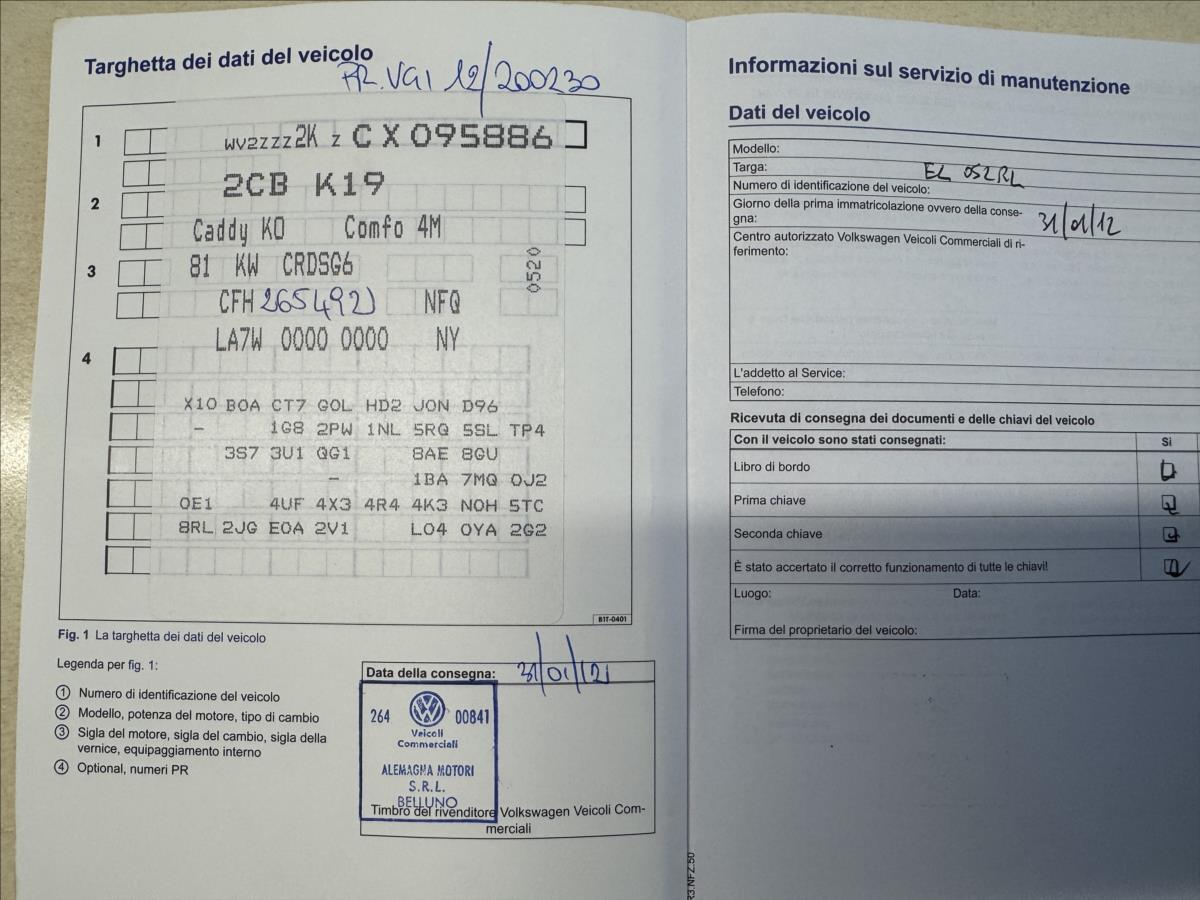 Targhetta dei dati del veicolo
PR.VGI 12/200230
1 WV2ZZZ2K Z CX095886
2CB K19
2
Caddy KO Comfo 4M
3 81 KW CRDSG6
0520
CFH 265492 NFQ
LA7W 0000 0000 NY
4
X10 B0A CT7 G0L HD2 J0N D96
- 1G8 2PW 1NL 5RQ 5SL TP4
3S7 3U1 QG1 8AE 8GU
- 1BA 7MQ 0J2
0E1 4UF 4X3 4R4 4K3 N0H 5TC
8RL 2JG E0A 2V1 L04 0YA 2G2
B1T-0401
Fig. 1 La targhetta dei dati del veicolo
Legenda per fig. 1:
① Numero di identificazione del veicolo
② Modello, potenza del motore, tipo di cambio
③ Sigla del motore, sigla del cambio, sigla della
vernice, equipaggiamento interno
④ Optional, numeri PR
Data della consegna: 31/01/12
264 00841
Veicoli
Commerciali
ALEMAGNA MOTORI
S.R.L.
BELLUNO
Timbro del rivenditore Volkswagen Veicoli Com-
merciali
Informazioni sul servizio di manutenzione
Dati del veicolo
Modello:
Targa: EL 052RL
Numero di identificazione del veicolo:
Giorno della prima immatricolazione ovvero della conse-
gna: 31/01/12
Centro autorizzato Volkswagen Veicoli Commerciali di ri-
ferimento:
L'addetto al Service:
Telefono:
Ricevuta di consegna dei documenti e delle chiavi del veicolo
Con il veicolo sono stati consegnati: Sì
Libro di bordo
Prima chiave
Seconda chiave
È stato accertato il corretto funzionamento di tutte le chiavi!
Luogo: Data:
Firma del proprietario del veicolo:
R3.NFZ.50